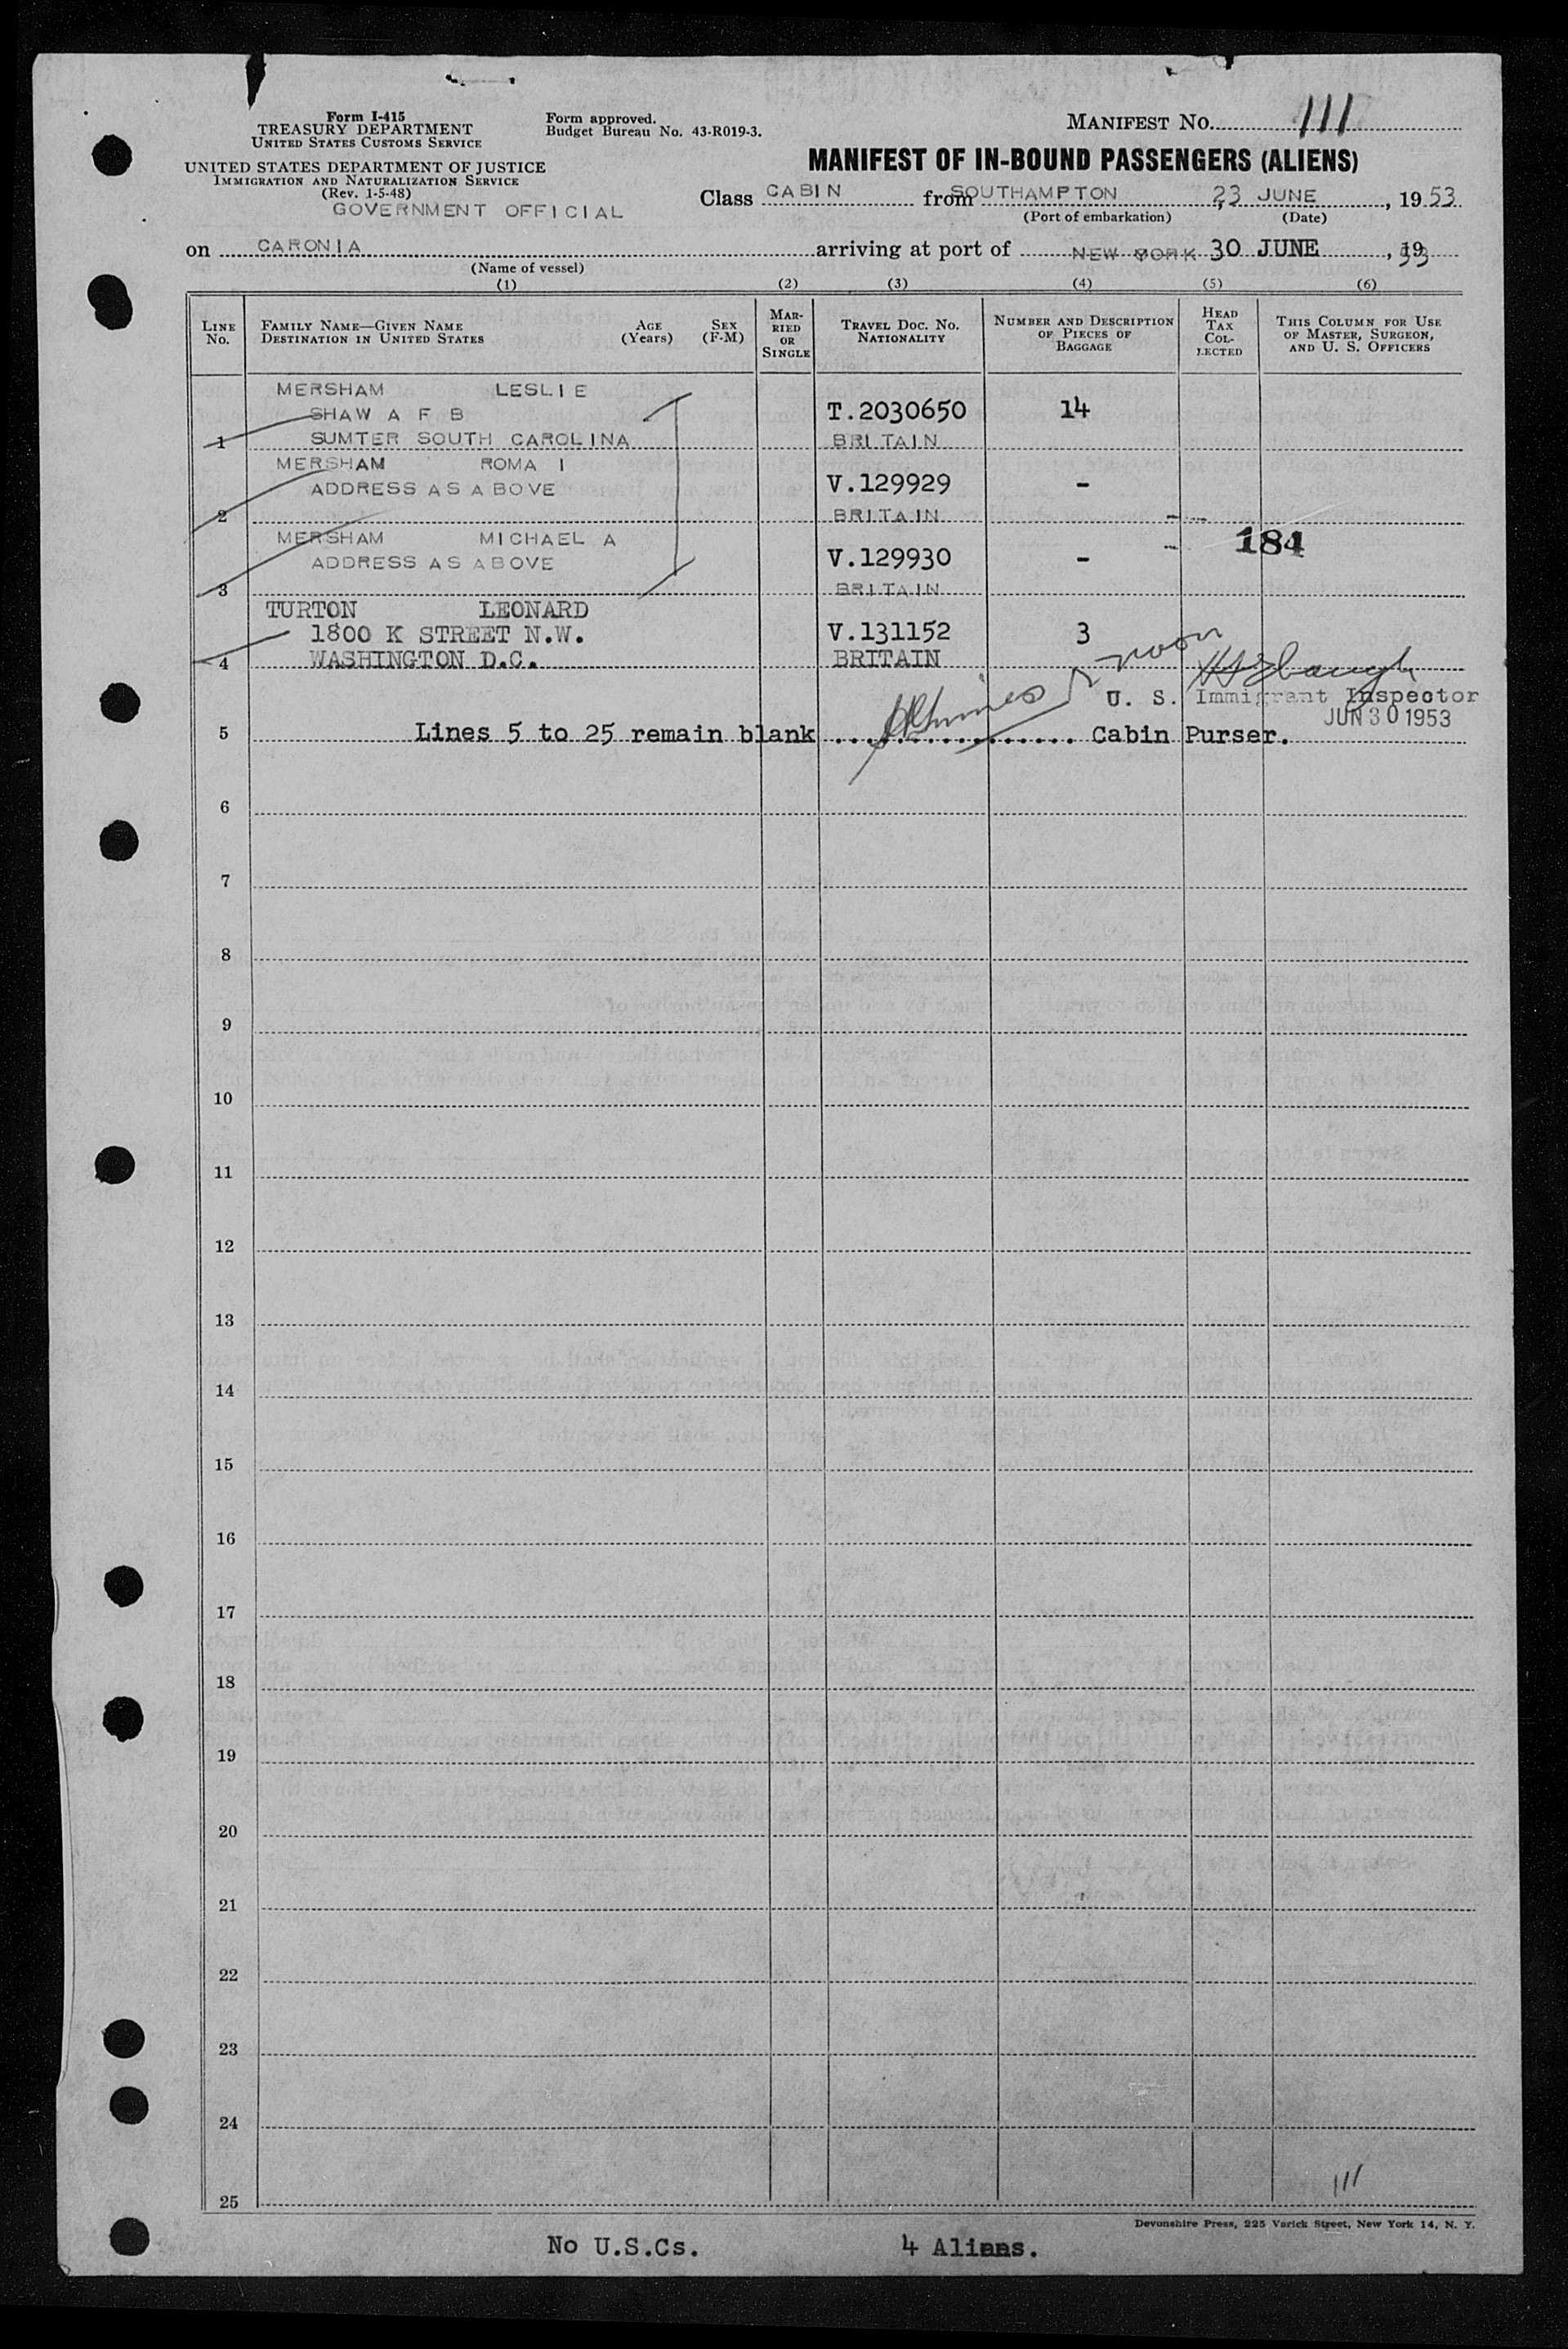 Form I-415
TREASURY DEPARTMENT
UNITED STATES CUSTOMS SERVICE
UNITED STATES DEPARTMENT OF JUSTICE
IMMIGRATION AND NATURALIZATION SERVICE
(Rev. 1-5-48)
GOVERNMENT OFFICIAL
Form approved.
Budget Bureau No. 43-R019-3.
MANIFEST NO. 111
MANIFEST OF IN-BOUND PASSENGERS (ALIENS)
Class CABIN from SOUTHAMPTON, 23 JUNE, 19 53
(Port of embarkation) (Date)
on CARONIA arriving at port of NEW YORK 30 JUNE, 19 53
(Name of vessel)
(1) (2) (3) (4) (5) (6)
LINE NO. FAMILY NAME—GIVEN NAME DESTINATION IN UNITED STATES AGE (Years) SEX (F-M) MARRIED OR SINGLE TRAVEL DOC. NO. NATIONALITY NUMBER AND DESCRIPTION OF PIECES OF BAGGAGE HEAD TAX COLLECTED THIS COLUMN FOR USE OF MASTER, SURGEON, AND U. S. OFFICERS
MERSHAM LESLIE
SHAW A F B T.2030650 14
1 SUMTER SOUTH CAROLINA BRITAIN
MERSHAM ROMA I
ADDRESS AS ABOVE V.129929 -
2 BRITAIN
MERSHAM MICHAEL A 184
ADDRESS AS ABOVE V.129930 -
3 BRITAIN
TURTON LEONARD
1800 K STREET N.W. V.131152 3
4 WASHINGTON D.C. BRITAIN
U. S. Immigrant Inspector
JUN 30 1953
5 Lines 5 to 25 remain blank ................ Cabin Purser.
6
7
8
9
10
11
12
13
14
15
16
17
18
19
20
21
22
23
24
111
25
Devonshire Press, 225 Varick Street, New York 14, N. Y.
No U.S.Cs. 4 Aliens.